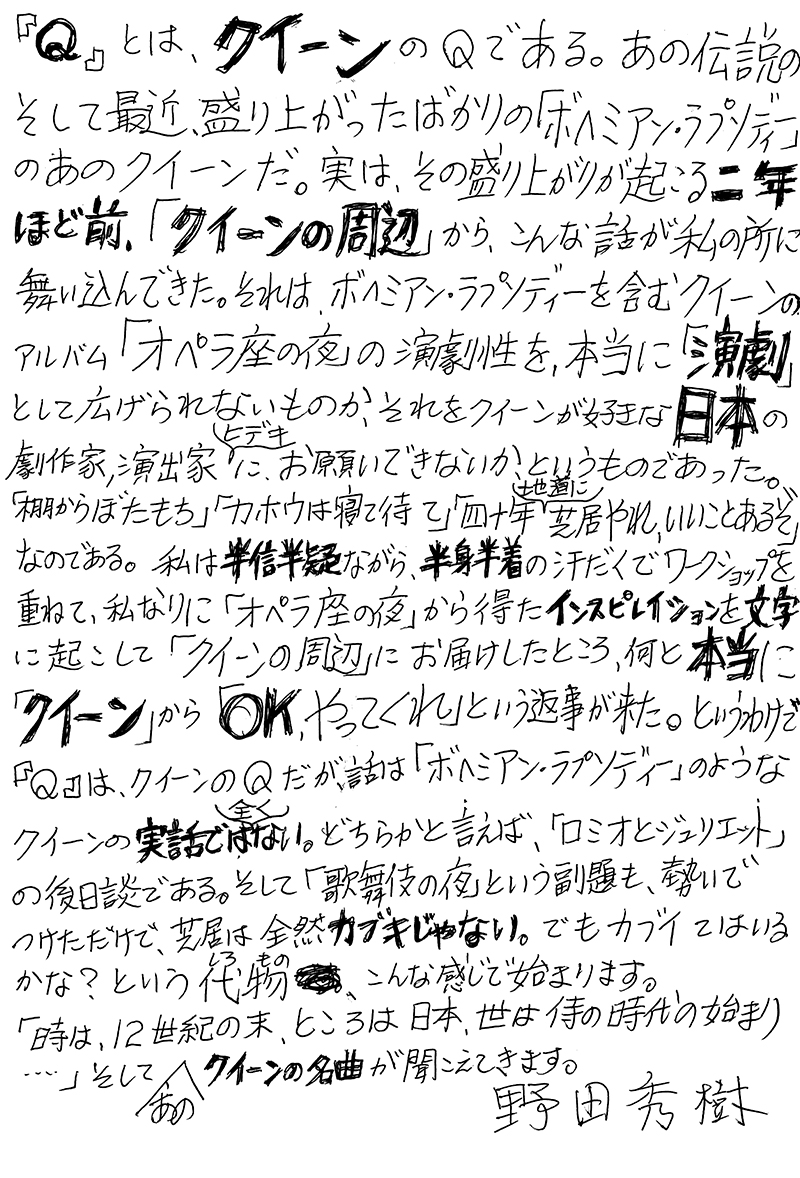 『Q』とは、クイーンのQである。あの伝説の
そして最近、盛り上がったばかりの「ボヘミアン・ラプソディー」
のあのクイーンだ。実は、その盛り上がりが起こる二年
ほど前、「クイーンの周辺」から、こんな話が私の所に
舞い込んできた。それは、ボヘミアン・ラプソディーを含むクイーンの
アルバム「オペラ座の夜」の演劇性を、本当に「演劇」
として広げられないものか、それをクイーンが好きな日本の
ヒデキ
劇作家、演出家に、お願いできないか、というものであった。
地道に
「棚からぼたもち」「カホウは寝て待て」「四十年芝居やれ、いいことあるぞ」
なのである。私は半信半疑ながら、半身半着の汗だくでワークショップを
重ねて、私なりに「オペラ座の夜」から得たインスピレイションを文字
に起こして「クイーンの周辺」にお届けしたところ、何と本当に
「クイーン」から「OK、やってくれ」という返事が来た。というわけで
『Q』は、クイーンのQだが、話は「ボヘミアン・ラプソディー」のような
全く
クイーンの実話ではない。どちらかと言えば、「ロミオとジュリエット」
の後日談である。そして「歌舞伎の夜」という副題も、勢いで
つけただけで、芝居は全然カブキじゃない。でもカブイてはいる
しろ もの
かな?という代物、こんな感じで始まります。
「時は、12世紀の末、ところは日本、世は侍の時代の始まり
……」そしてクイーンの名曲が聞こえてきます。
あの
野田秀樹